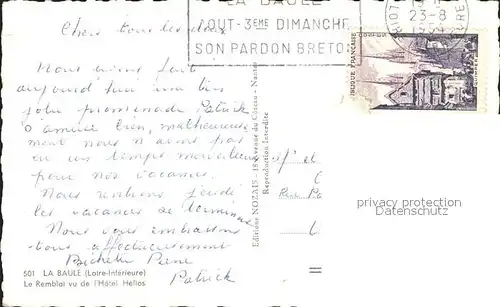 LA BAULE
OUT-3EME DIMANCHE
SON PARDON BRETON
23-8
1954
Chers tous les deux
Nous avons fait
aujourd'hui une très
jolie promenade Patrick
s'amuse bien, malheureuse
ment nous n'avons pas
eu un temps merveilleux
pour nos vacances.
Nous rentrons jeudi
les vacances se terminent
Nous vous embrassons
tous affectueusement
Pierre
Patrick
501 LA BAULE (Loire-Inférieure)
Le Remblai vu de l'Hôtel Helios
Editions NOZAIS - 18 Avenue du Coteau - Nantes
Reproduction Interdite
RÉPUBLIQUE FRANÇAISE
QUIMPER
et
Rue
privacy protection
Datenschutz